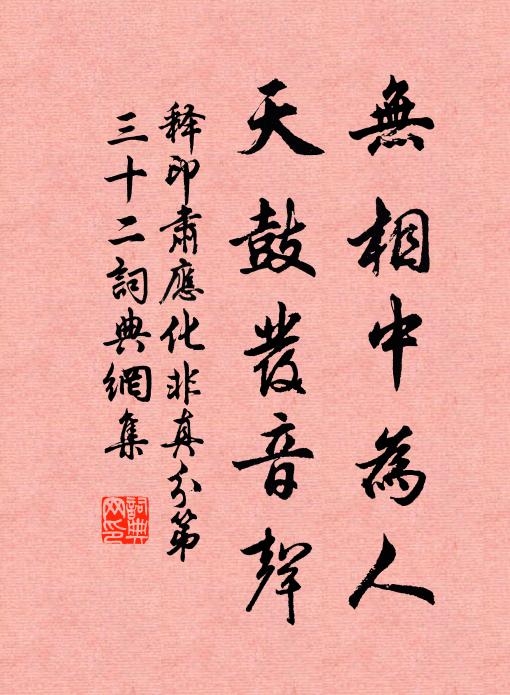 無相中為人
天鼓發音聲
释印肅應化非真分第
三十二詞典網集
詞典
網印